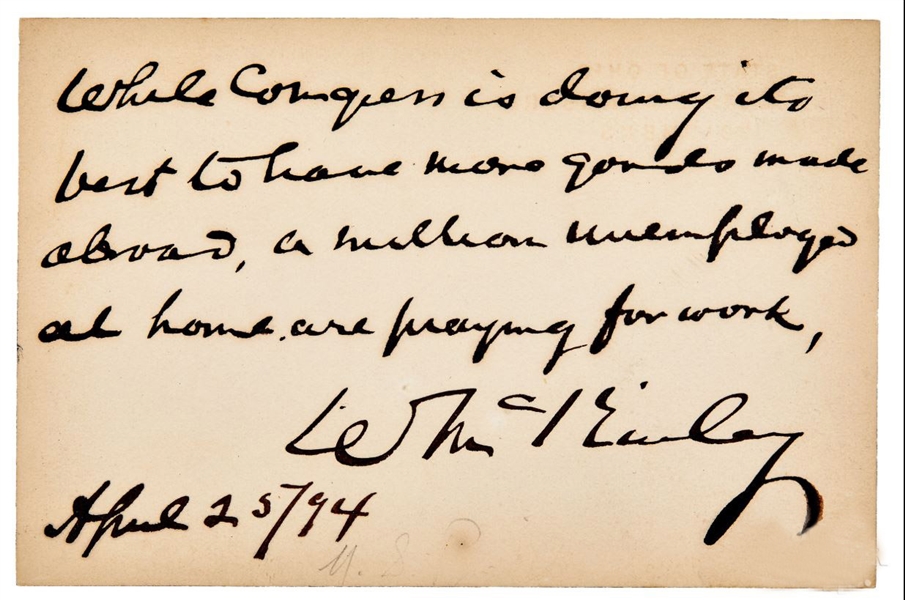 While Congress is doing its
best to have more goods made
abroad, a million unemployed
at home are praying for work,
W McKinley
April 25/94